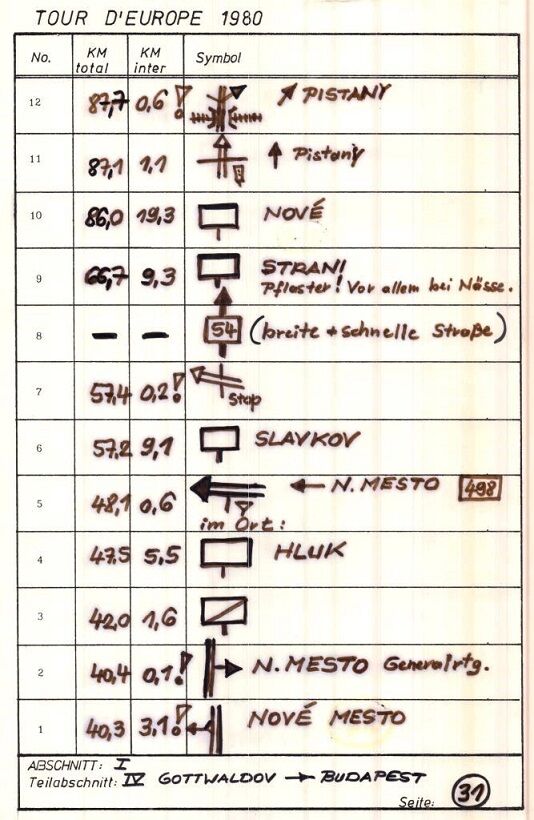 TOUR D'EUROPE 1980
No. KM total KM inter Symbol
12 87,7 0,6! ↗ PISTANY
11 87,1 1,1 ↑ Pistany
10 86,0 19,3 NOVÉ
9 66,7 9,3 STRANI
Pflaster! Vor allem bei Nässe.
8 — — 54 (breite + schnelle Straße)
7 57,4 0,2! Stop
6 57,2 9,1 SLAVKOV
5 48,1 0,6 ← N. MESTO 498
im Ort:
4 47,5 5,5 HLUK
3 42,0 1,6
2 40,4 0,1! N. MESTO Generalrtg.
1 40,3 3,1! NOVÉ MESTO
ABSCHNITT: I
Teilabschnitt: IV GOTTWALDOV → BUDAPEST
Seite: 31